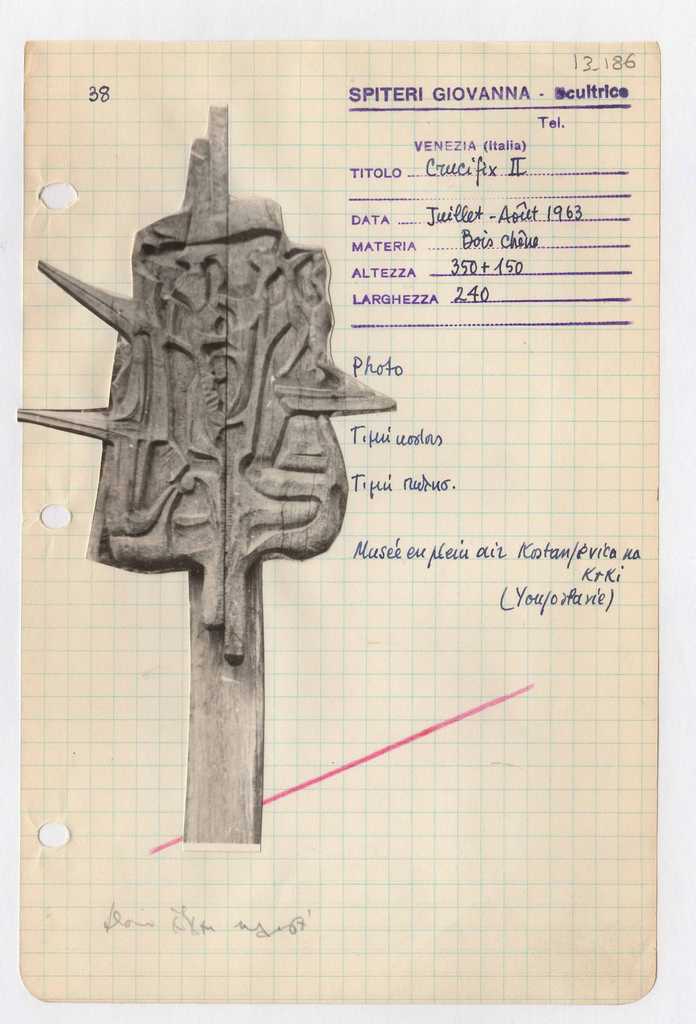 13_186
38
SPITERI GIOVANNA - Scultrice
Tel.
VENEZIA (Italia)
TITOLO Crucifix II
DATA Juillet - Août 1963
MATERIA Bois chêne
ALTEZZA 350 + 150
LARGHEZZA 240
Photo
Τιμή κοστους
Τιμή πωλησ.
Musée en plein air Kostanjevica na
Krki
(Yougoslavie)